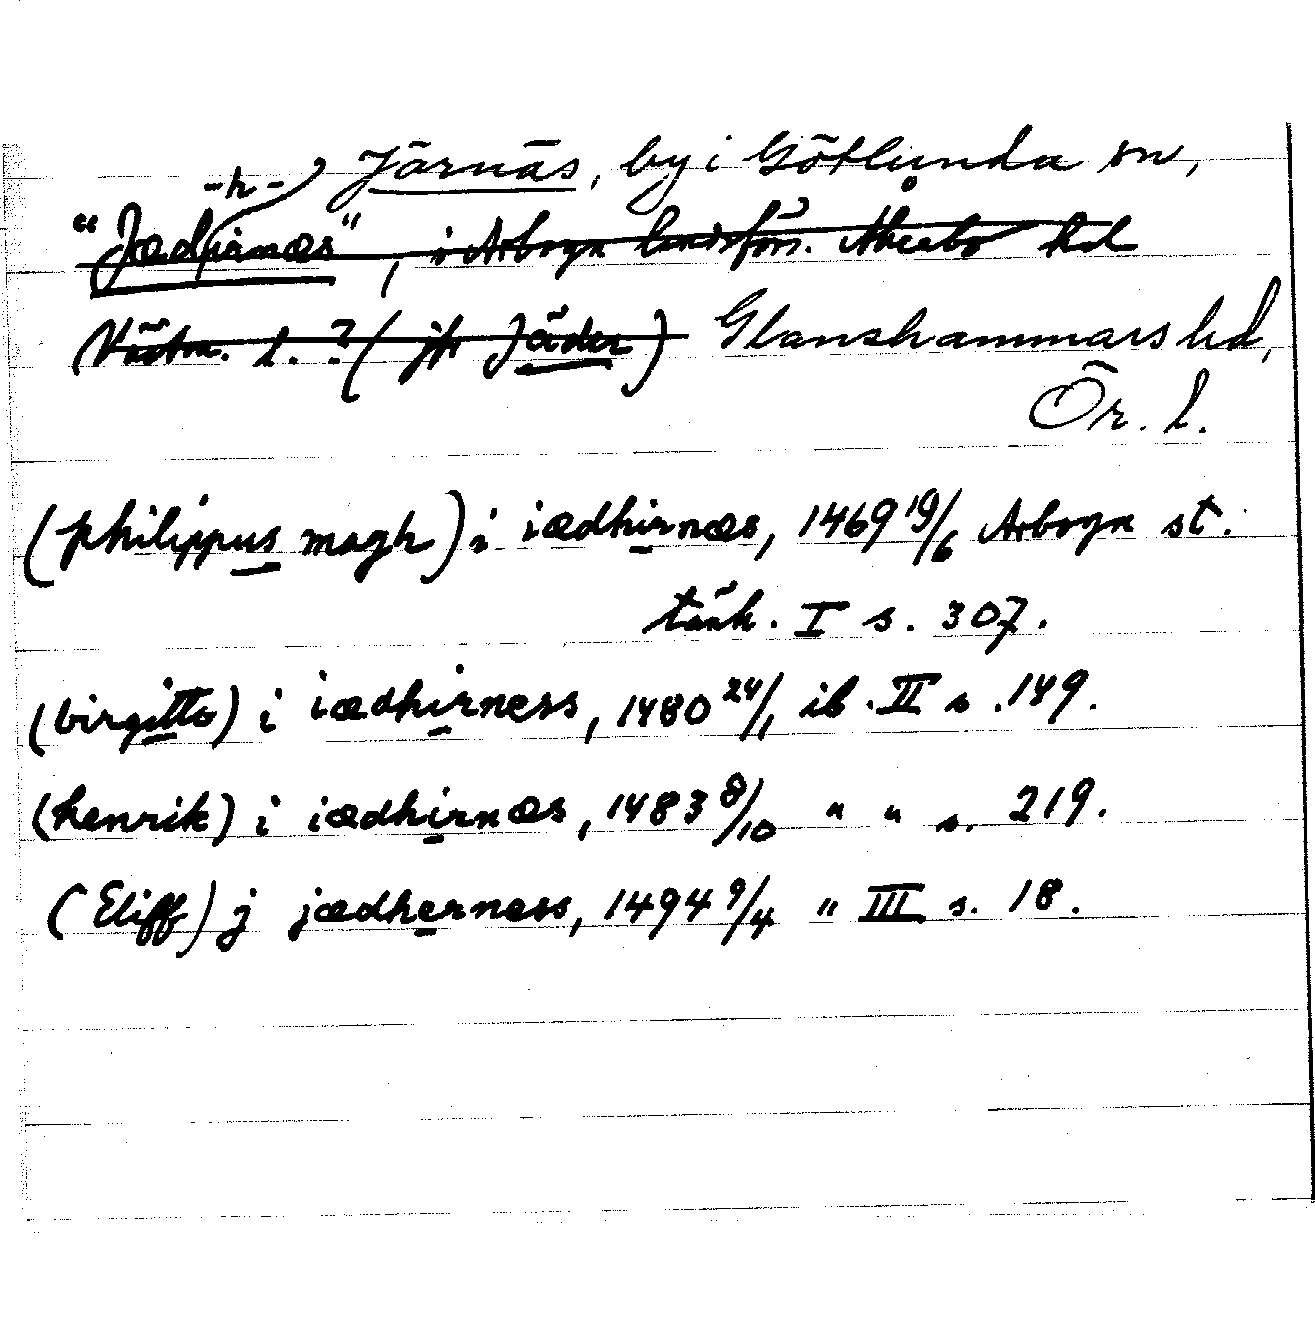 Järnäs, by i Götlunda sn,
-h-
"Jædhirnæs", i Arboga landsförs. Åkerbo hd
Västm. l. ? (jfr Jäder) Glanshammars hd,
Ör. l.
(philippus magh) i iædhirnæs, 1469 19/6 Arboga st.
tänk. I s. 307.
(birgitta) i iædhirness, 1480 24/1 ib. II s. 149.
(henrik) i iædhirnæs, 1483 8/10 " " s. 219.
(Eliff) j jædherness, 1494 9/4 " III s. 18.